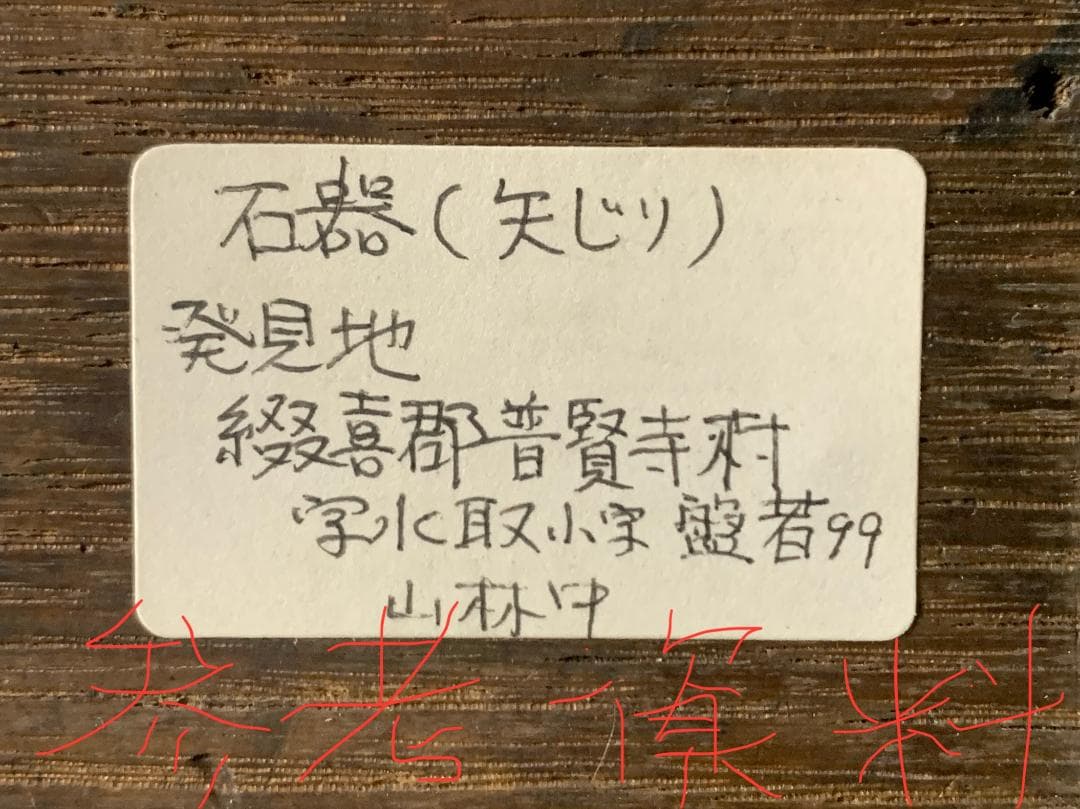 石器(矢じり)
発見地
綴喜郡普賢寺村
字水取小字盤若99
山林中
参考資料